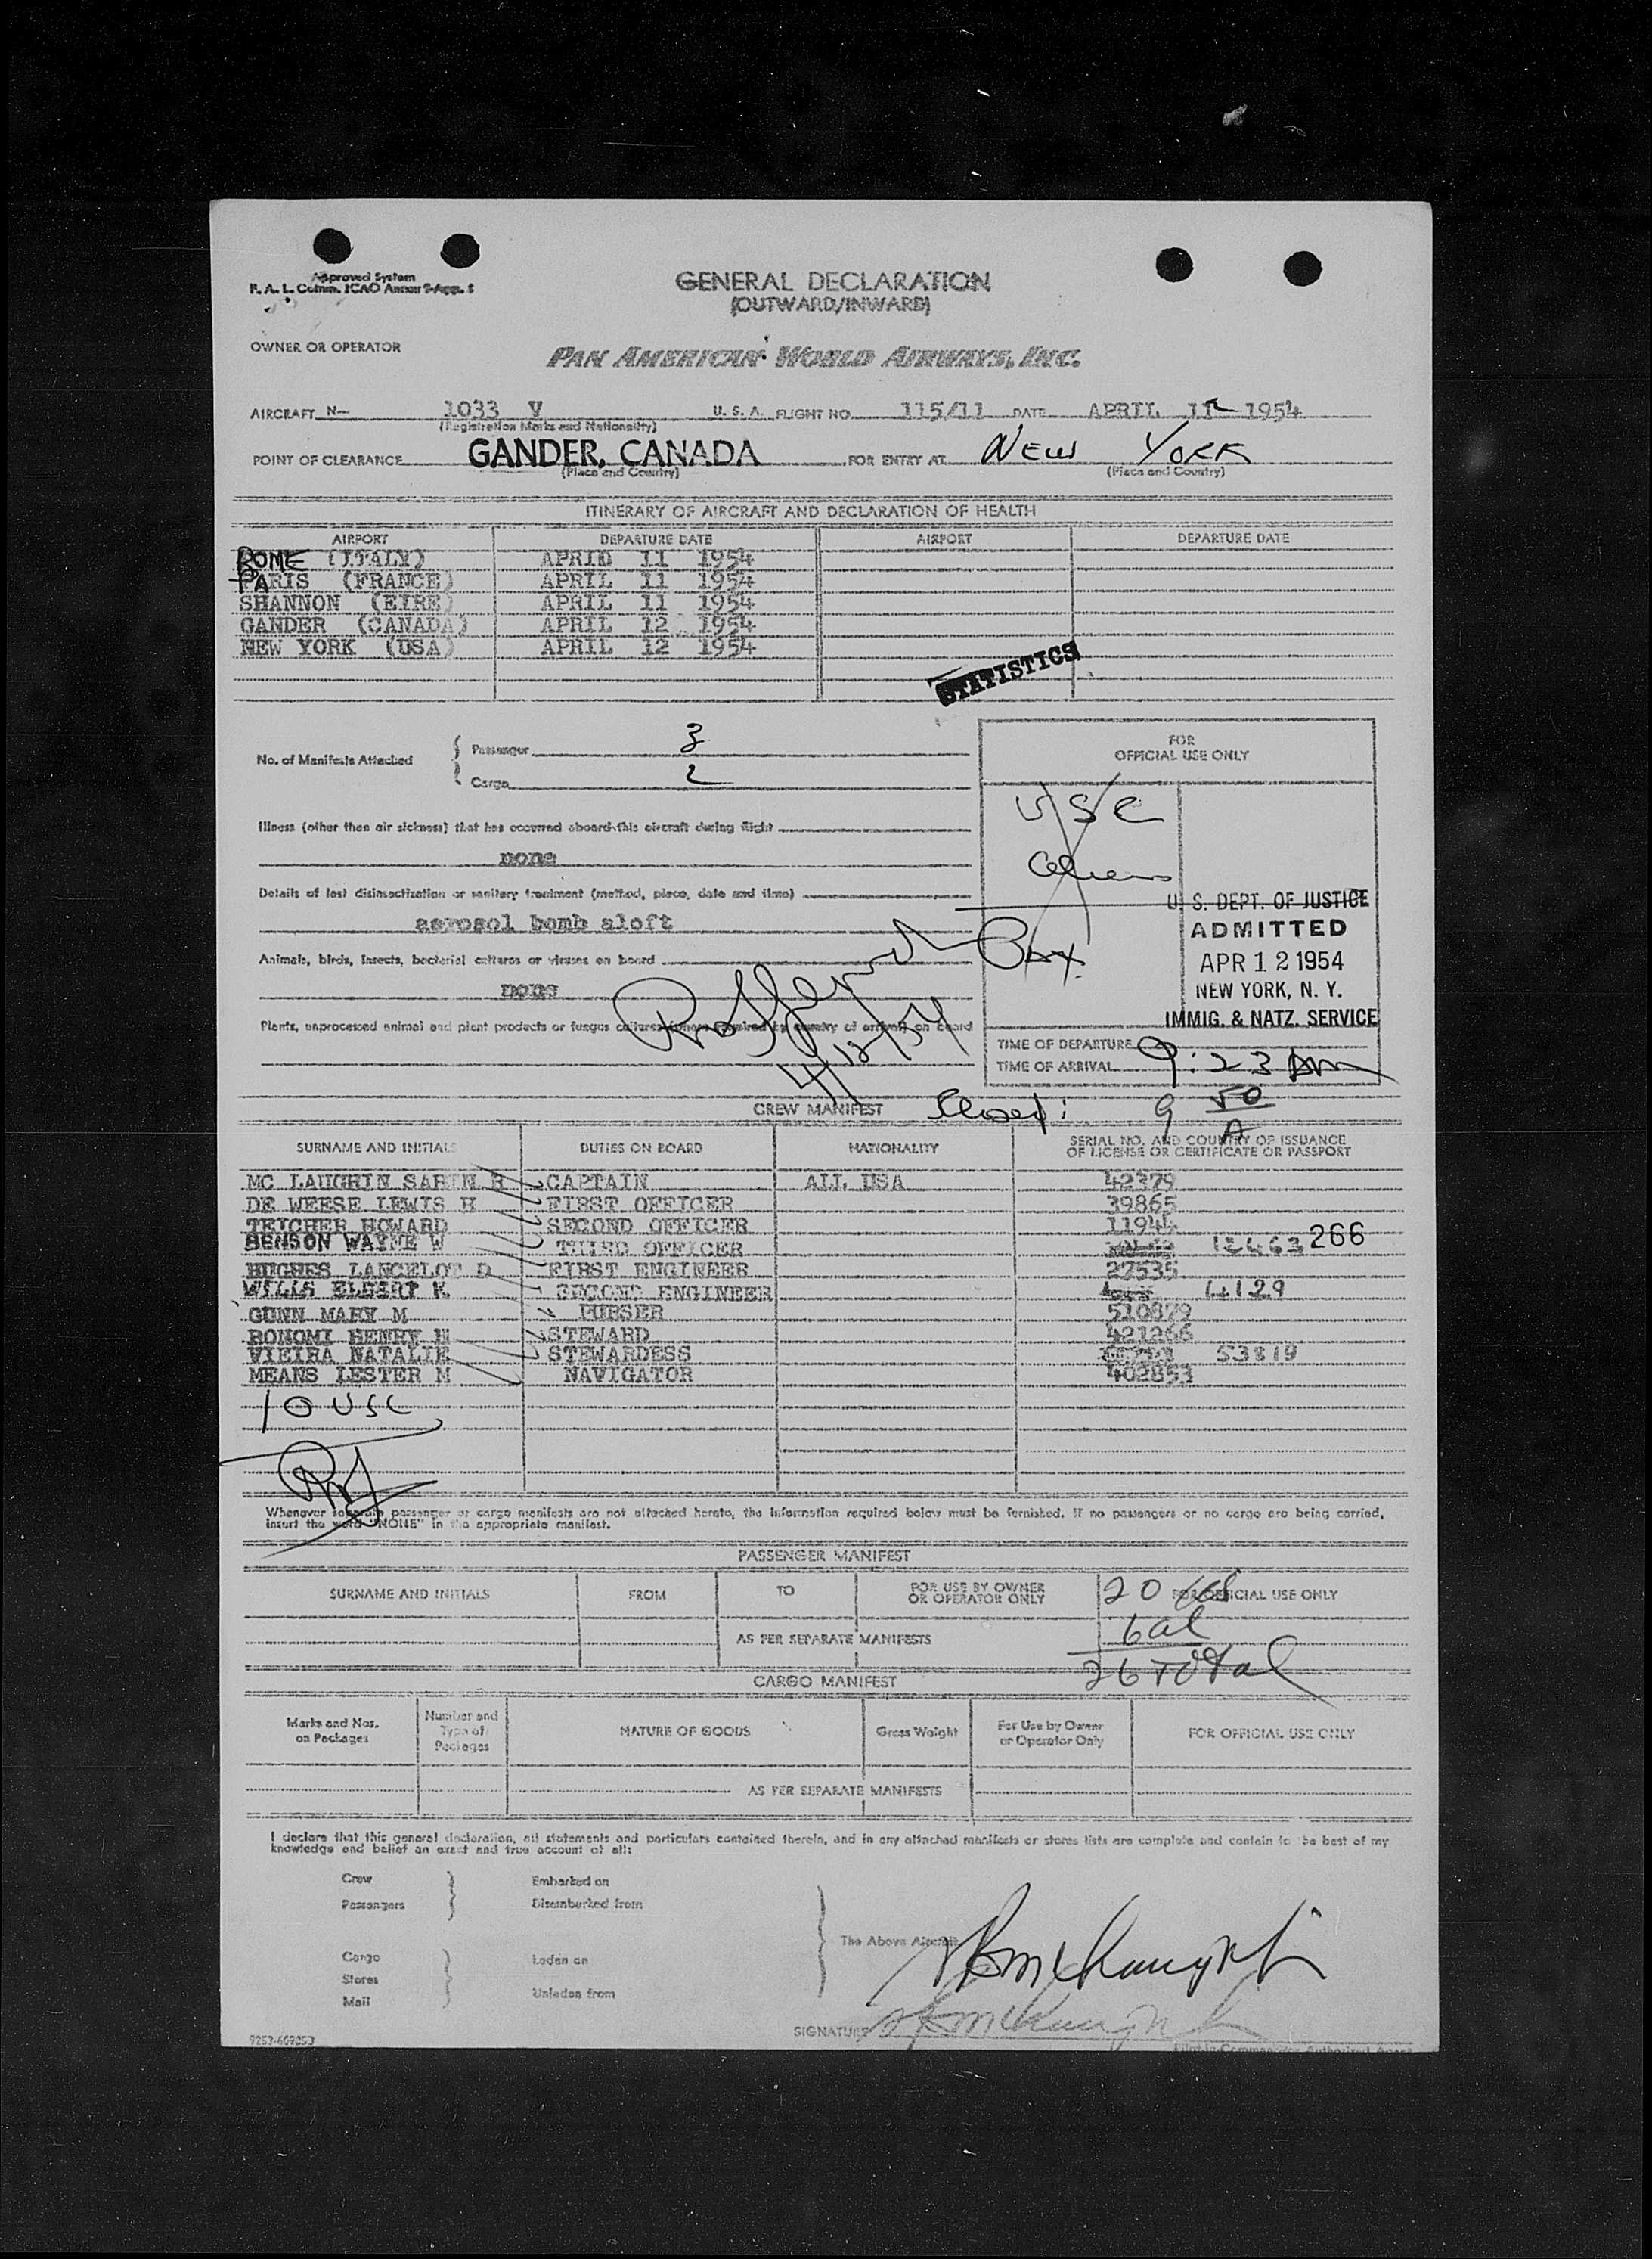 Approved System
F. A. L. Comm. ICAO Annex 9-App. 1
GENERAL DECLARATION
(OUTWARD/INWARD)
OWNER OR OPERATOR
PAN AMERICAN WORLD AIRWAYS, INC.
AIRCRAFT N- 1033 V U. S. A. FLIGHT NO. 115/11 DATE APRIL 1954
(Registration Marks and Nationality)
POINT OF CLEARANCE GANDER, CANADA FOR ENTRY AT New York
(Place and Country) (Place and Country)
ITINERARY OF AIRCRAFT AND DECLARATION OF HEALTH
AIRPORT DEPARTURE DATE AIRPORT DEPARTURE DATE
ROME (ITALY) APRIL 11 1954
PARIS (FRANCE) APRIL 11 1954
SHANNON (EIRE) APRIL 11 1954
GANDER (CANADA) APRIL 12 1954
NEW YORK (USA) APRIL 12 1954
STATISTICS
No. of Manifests Attached
Passenger 3
Cargo 2
FOR
OFFICIAL USE ONLY
USC
Illness (other than air sickness) that has occurred aboard this aircraft during flight
none
Details of last disinsectization or sanitary treatment (method, place, date and time)
aerosol bomb aloft
Animals, birds, insects, bacterial cultures or viruses on board
none
Plants, unprocessed animal and plant products or fungus cultures (where required by country of arrival) on board
4/12/54
U. S. DEPT. OF JUSTICE
ADMITTED
APR 12 1954
NEW YORK, N. Y.
IMMIG. & NATZ. SERVICE
TIME OF DEPARTURE
TIME OF ARRIVAL 9:23 AM
CREW MANIFEST Closed: 9 50 A
SURNAME AND INITIALS DUTIES ON BOARD NATIONALITY SERIAL NO. AND COUNTRY OF ISSUANCE
OF LICENSE OR CERTIFICATE OR PASSPORT
MC LAUGHIN SABIN R CAPTAIN ALL USA 42379
DE WEESE LEWIS H FIRST OFFICER 39865
TEICHER HOWARD SECOND OFFICER 11944
BENSON WAYNE W THIRD OFFICER 12463 266
HUGHES LANCELOT D FIRST ENGINEER 27535
WILLS ELBERT K SECOND ENGINEER 4129
GUNN MARY M PURSER 510879
BONOMI HENRY H STEWARD 421266
VIEIRA NATALIE STEWARDESS 53819
MEANS LESTER M NAVIGATOR 402853
10 USC
Whenever separate passenger or cargo manifests are not attached hereto, the information required below must be furnished. If no passengers or no cargo are being carried,
insert the word "NONE" in the appropriate manifest.
PASSENGER MANIFEST
SURNAME AND INITIALS FROM TO FOR USE BY OWNER
OR OPERATOR ONLY FOR OFFICIAL USE ONLY
20
6 al
AS PER SEPARATE MANIFESTS
26 Total
CARGO MANIFEST
Marks and Nos.
on Packages Number and
Type of
Packages NATURE OF GOODS Gross Weight For Use by Owner
or Operator Only FOR OFFICIAL USE ONLY
AS PER SEPARATE MANIFESTS
I declare that this general declaration, all statements and particulars contained therein, and in any attached manifests or stores lists are complete and contain to the best of my
knowledge and belief an exact and true account of all:
Crew Embarked on
Passengers Disembarked from
The Above Aircraft
Cargo Laden on
Stores
Mail Unladen from
SIGNATURE
9253-609053